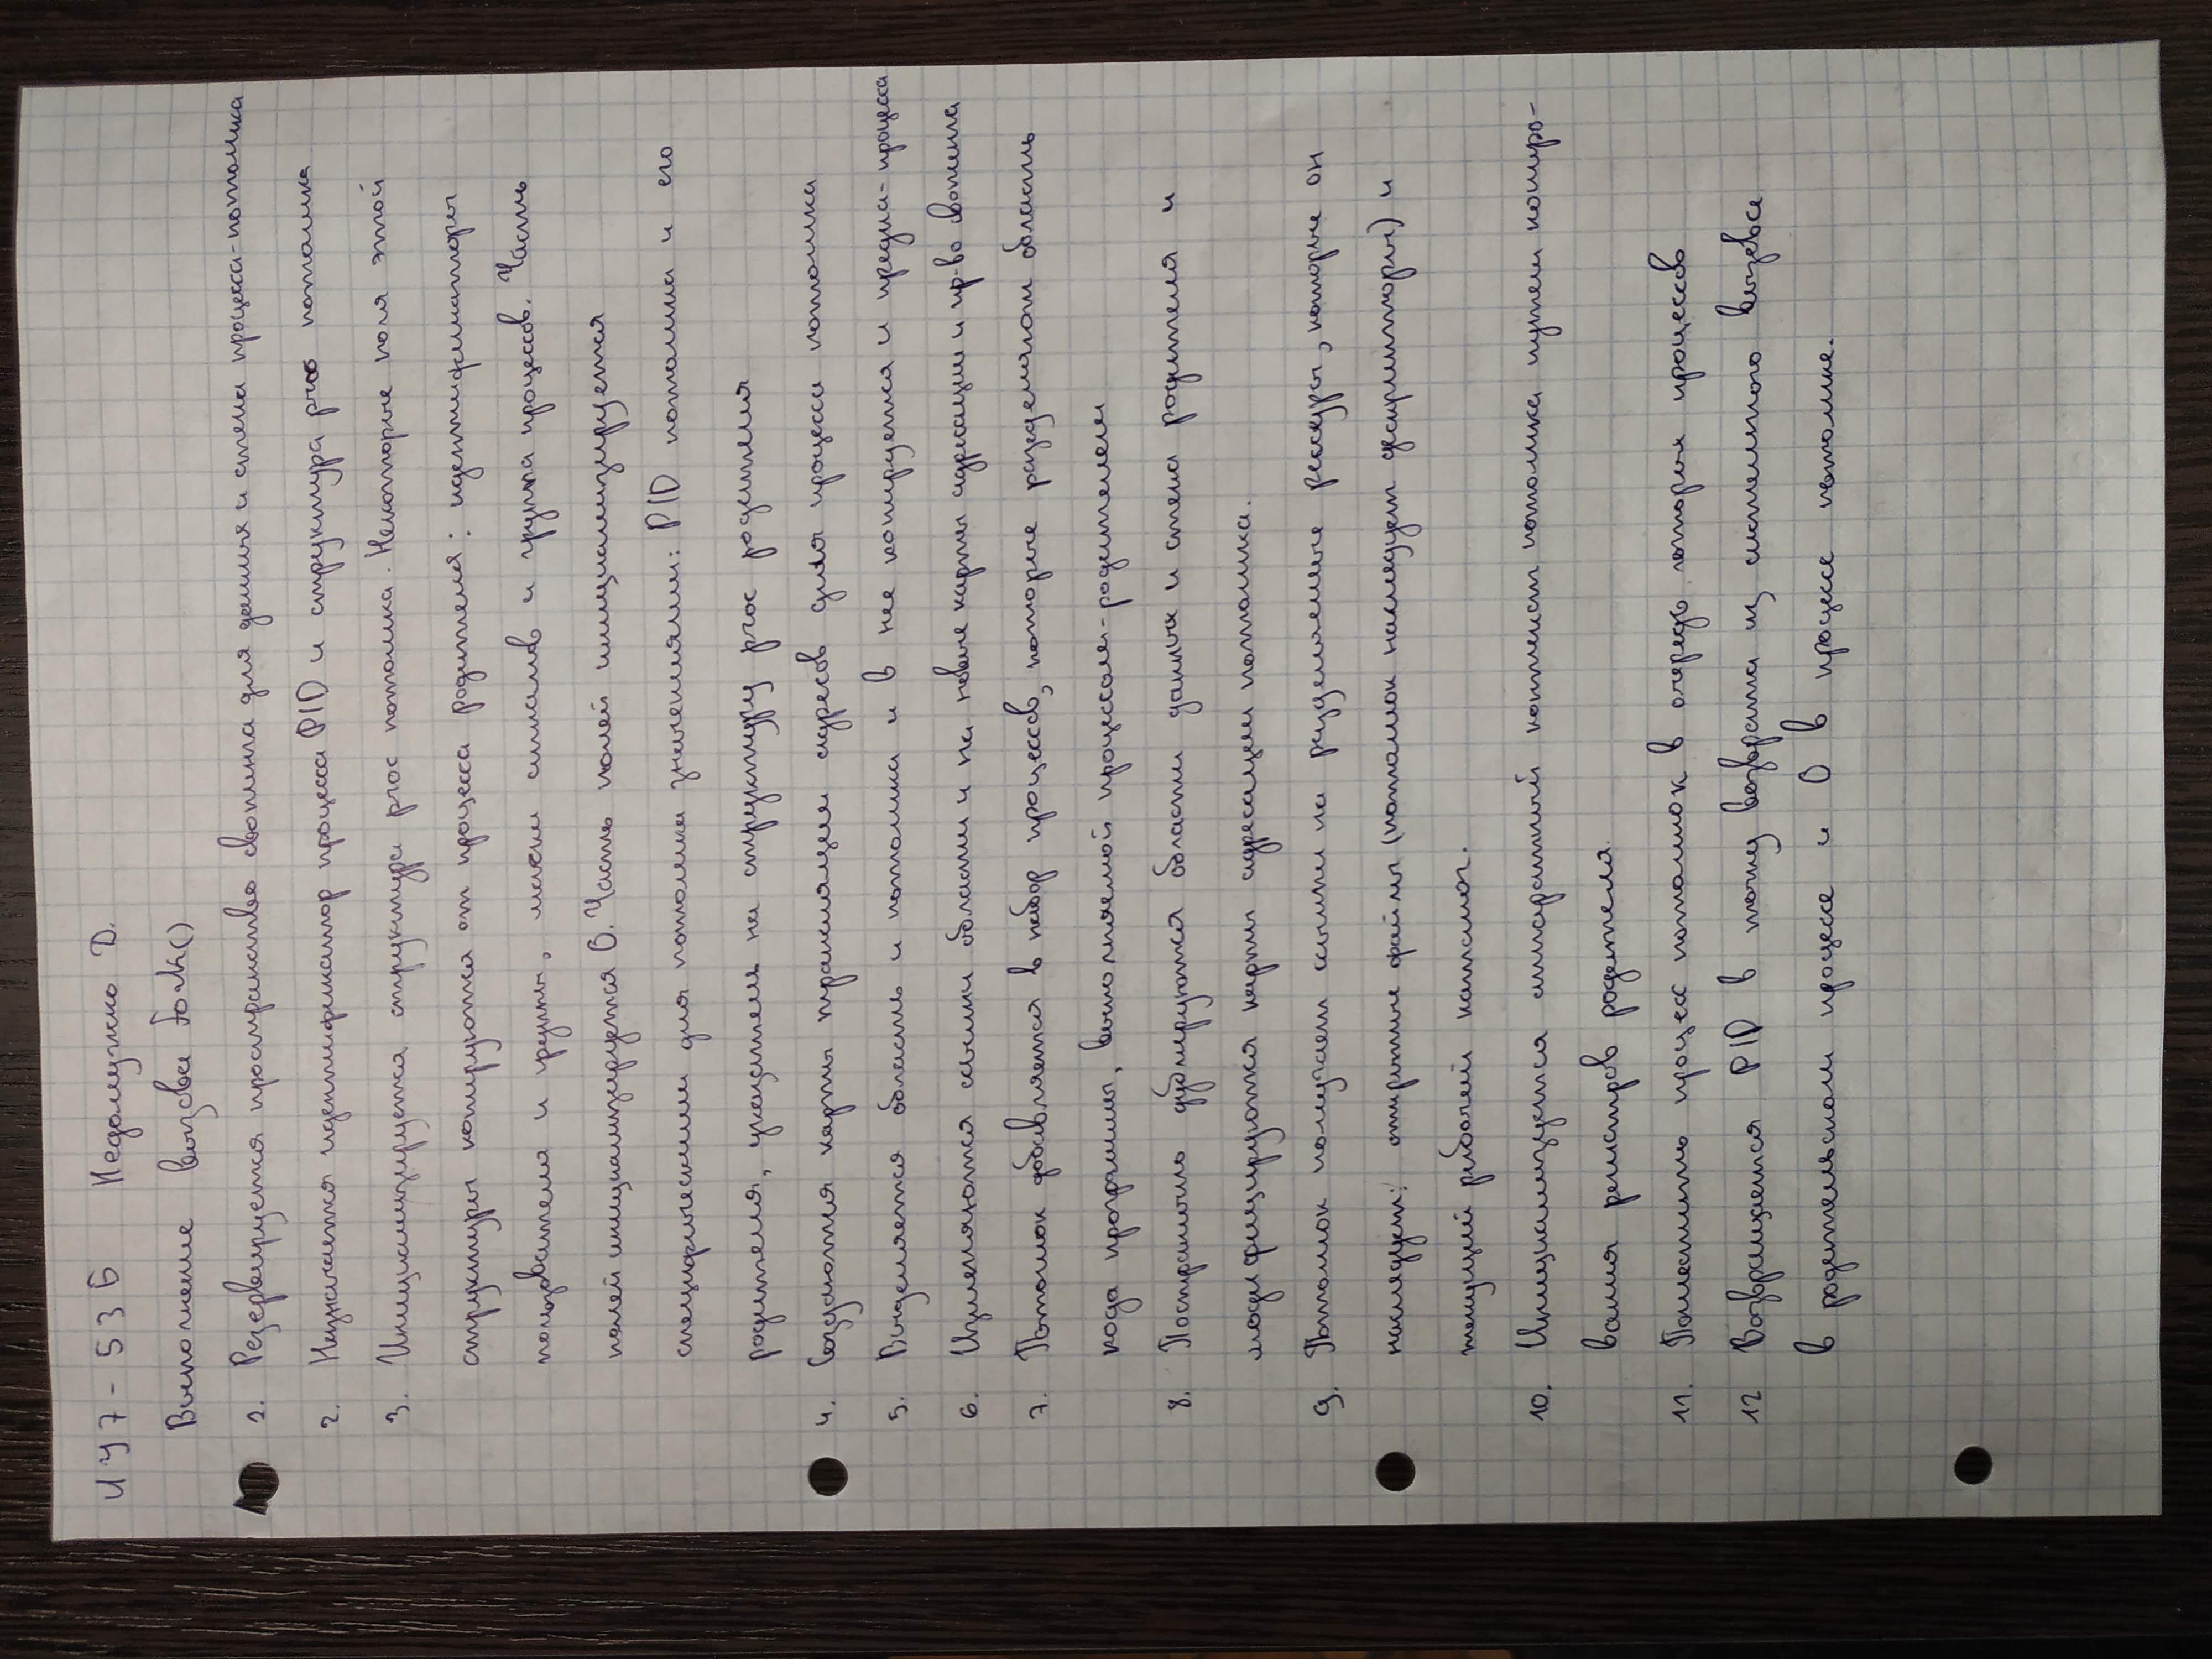 ИУ7-53Б Недолужко Д.
Выполнение вызова Fork()
1. Резервируется пространство свопинга для данных и стека процесса-потомка
2. Назначается идентификатор процесса PID и структура proc потомка
3. Инициализируется структура proc потомка. Некоторые поля этой
структуры копируются от процесса родителя: идентификаторы
пользователя и группы, маски сигналов и группа процессов. Часть
полей инициализируется 0. Часть полей инициализируется
специфическими для потомка значениями: PID потомка и его
родителя, указатель на структуру proc родителя
4. Создаются карты трансляции адресов для процесса потомка
5. Выделяется область u потомка и в нее копируется u предка-процесса
6. Изменяются ссылки области u на новые карты адресации и пр-во свопинга
7. Потомок добавляется в набор процессов, которые разделяют область
кода программы, выполняемой процессом-родителем
8. Постранично дублируются области данных и стека родителя и
модифицируются карты адресации потомка.
9. Потомок получает ссылки на разделяемые ресурсы, которые он
наследует: открытые файлы (потомок наследует дескрипторы) и
текущий рабочий каталог.
10. Инициализуется аппаратный контекст потомка путем копиро-
вания регистров родителя.
11. Поместить процесс потомок в очередь готовых процессов
12 Возвращается PID в точку возврата из системного вызова
в родительском процессе и 0 в процессе потомке.